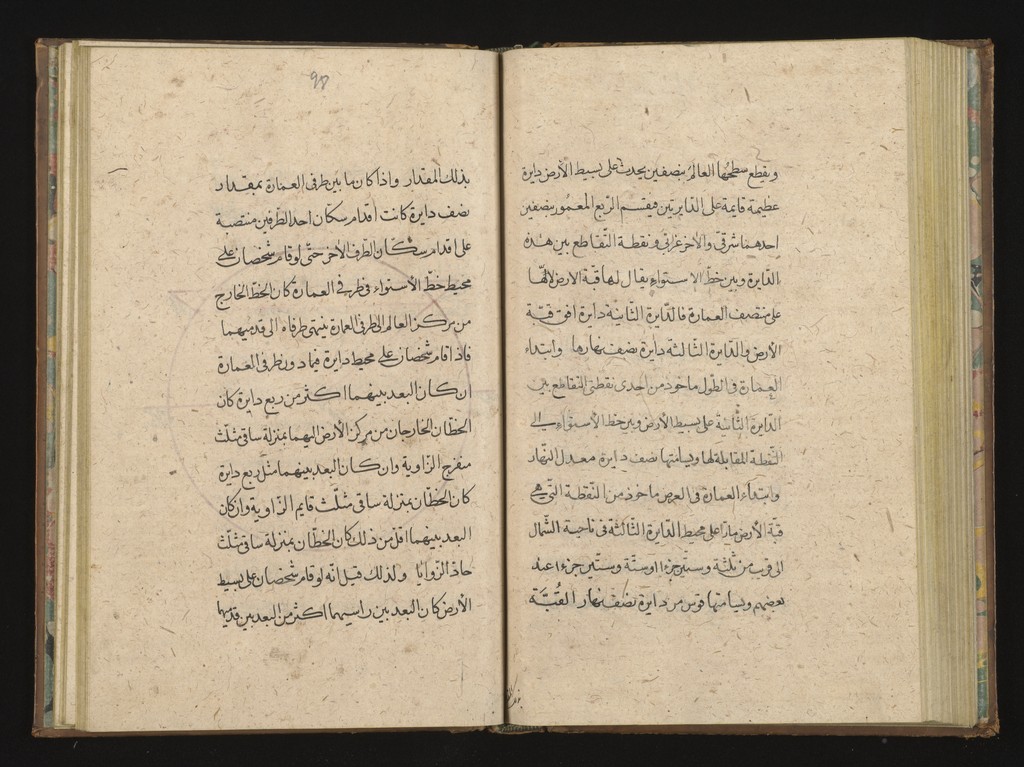 ويقطع سطحها العالم بنصفين يحدث على بسيط الأرض دايرة
عظيمة قايمة على الدايرتين فيقسم الربع المعمور بنصفين
احدهما شرقي والآخر غربي ونقطة التقاطع بين هذه
الدايرة وبين خط الاستواء يقال لها قبة الارض لانها
على منتصف العمارة فالدايرة الثانية دايرة افق قبة
الأرض والدايرة الثالثة دايرة نصف نهارها وابتداء
العمارة في الطول ماخوذ من احدى نقطتي التقاطع بين
الدايرة الثانية على بسيط الأرض وبين خط الأستواء الى
النقطة المقابلة لها ويسامتها نصف دايرة معدل النهار
وابتداء العمارة في العرض ماخوذ من النقطة التي هي
قبة الأرض مارا على محيط الدايرة الثالثة في ناحية الشمال
الى قرب من ثلثة وستين جزءا او ستة وستين جزءا عند
بعضهم ويسامتها قوس من دايرة نصف نهار القبة
٩٥
بذلك المقدار واذا كان ما بين طرفي العمارة بمقدار
نصف دايرة كانت أقدام سكان احد الطرفين منتصبة
على اقدام سكان الطرف الآخر حتى لو قام شخصان على
محيط خط الأستواء في طرفي العمارة كان الخط الخارج
من مركز العالم الى طرفي العمارة ينتهي طرفاه الى قدميهما
فاذا قام شخصان على محيط دايرة فيما دون طرفي العمارة
ان كان البعد بينهما اكثر من ربع دايرة كان
الخطان الخارجان من مركز الأرض اليهما بمنزلة ساقي مثلث
منفرج الزاوية وان كان البعد بينهما مثل ربع دايرة
كان الخطان بمنزلة ساقي مثلث قايم الزاوية وان كان
البعد بينهما اقل من ذلك كان الخطان بمنزلة ساقي مثلث
حاد الزوايا ولذلك قيل انه لو قام شخصان على بسيط
الأرض كان البعد بين راسيهما اكثر من البعد بين قدميهما